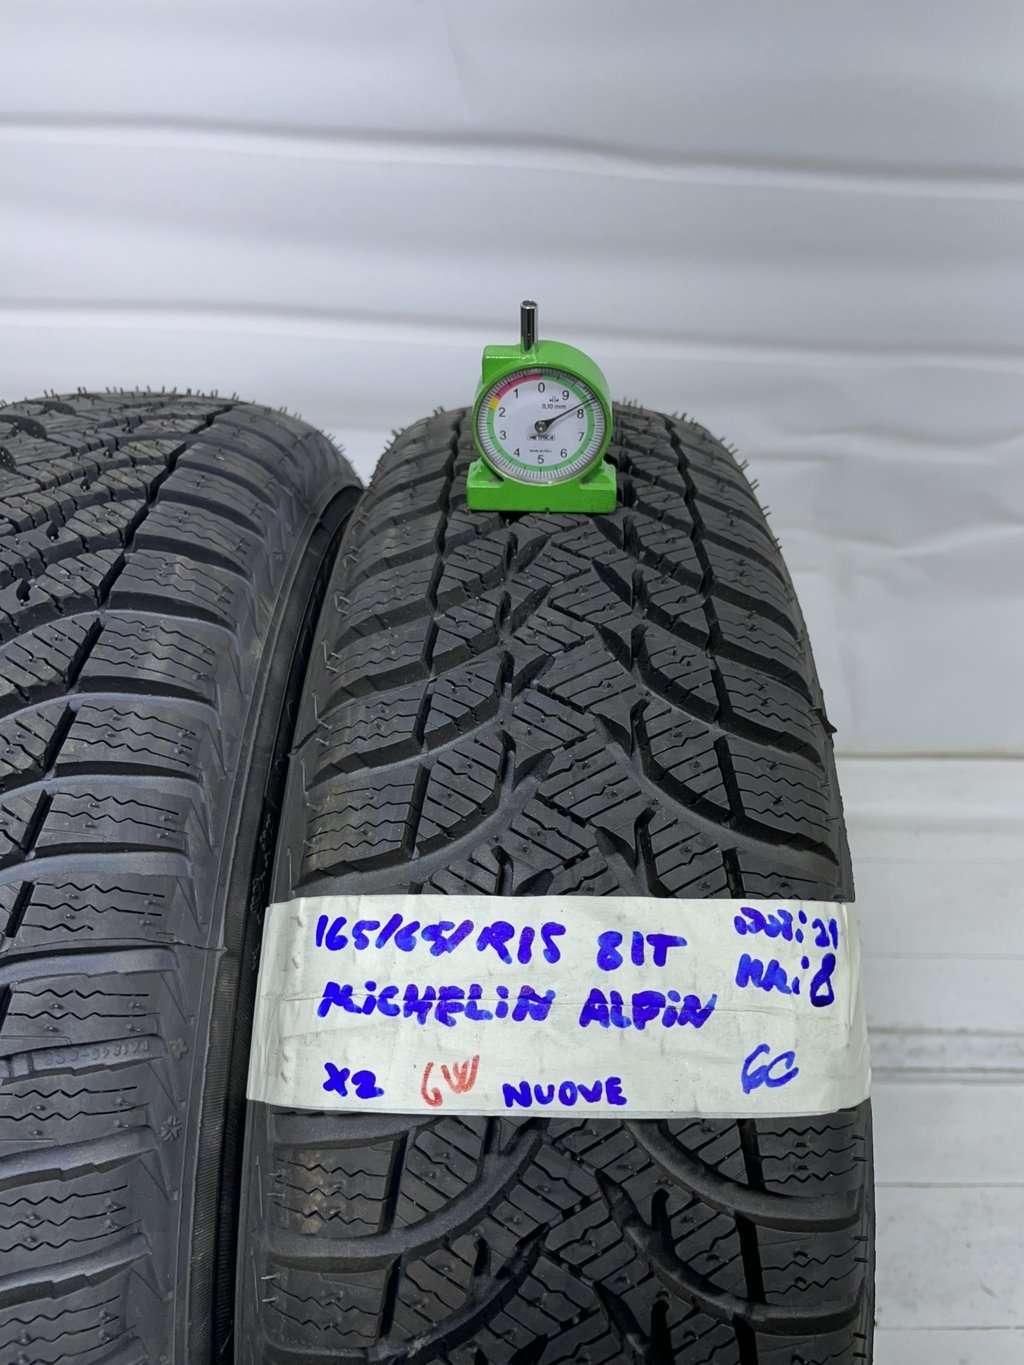 0
9
8
7
6
5
4
3
2
1
0,10 mm
165/65/R15 81T
MiCHELiN ALPiN
X2 GW NUOVE GC